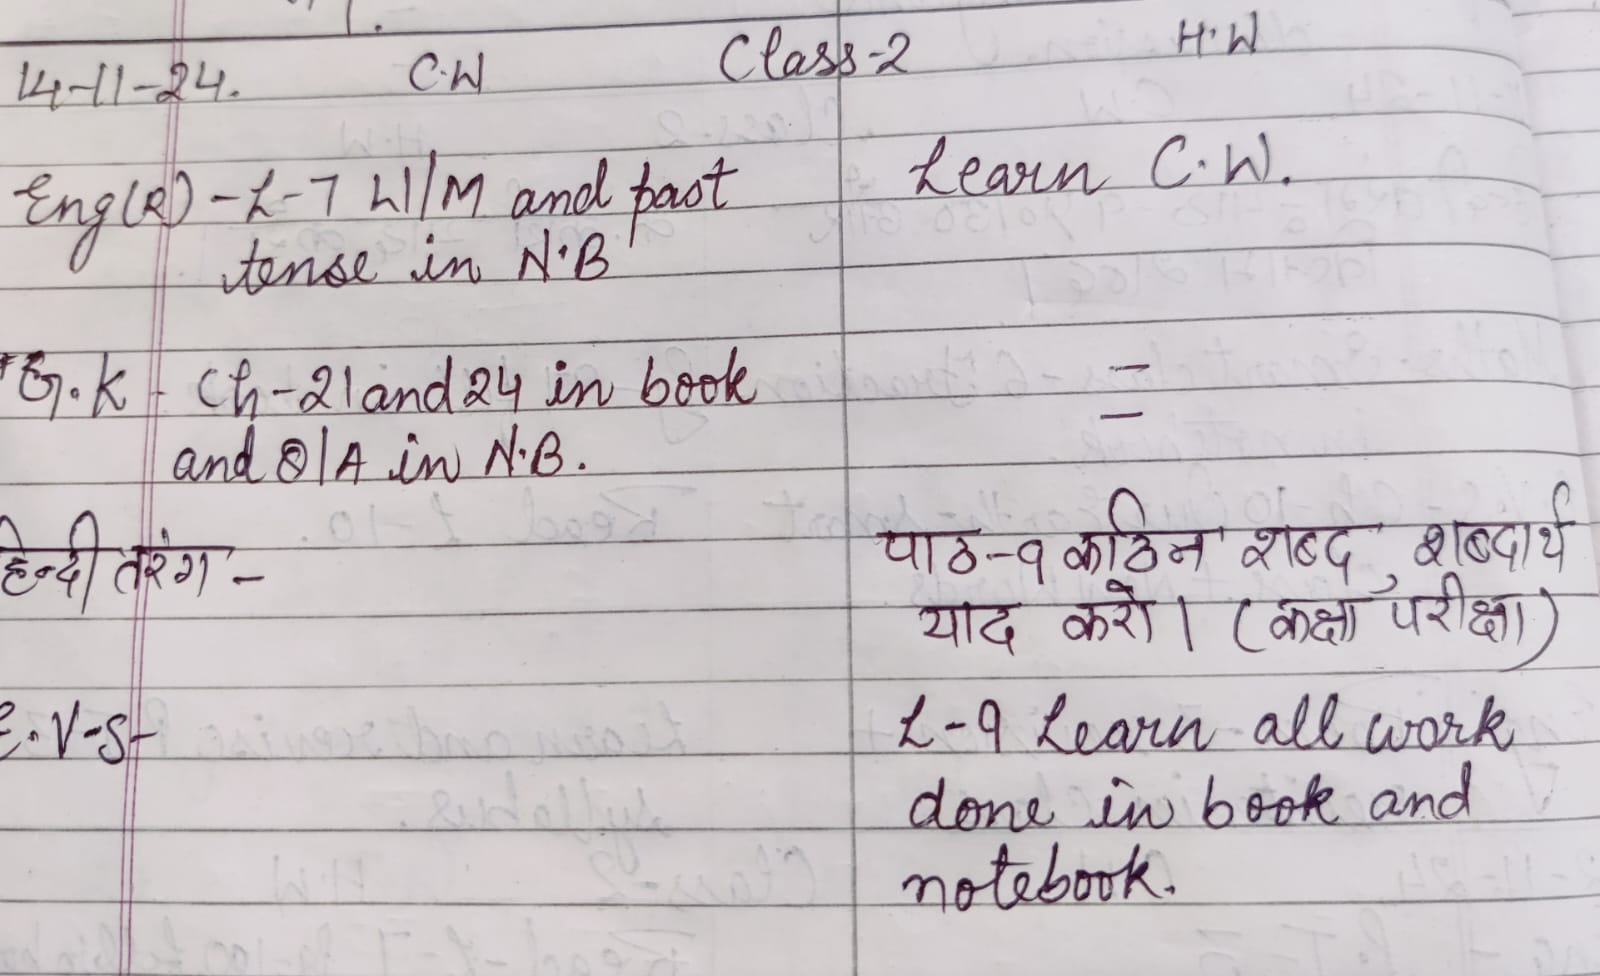 14-11-24. C.W Class-2 H.W
Eng(R) - L-7 W/M and past Learn C.W.
tense in N.B
G.K - Ch-21 and 24 in book =
and Q/A in N.B.
हिन्दी तरंग - पाठ-९ कठिन शब्द, शब्दार्थ
याद करो। (कक्षा परीक्षा)
E.V-S- L-9 Learn all work
done in book and
notebook.